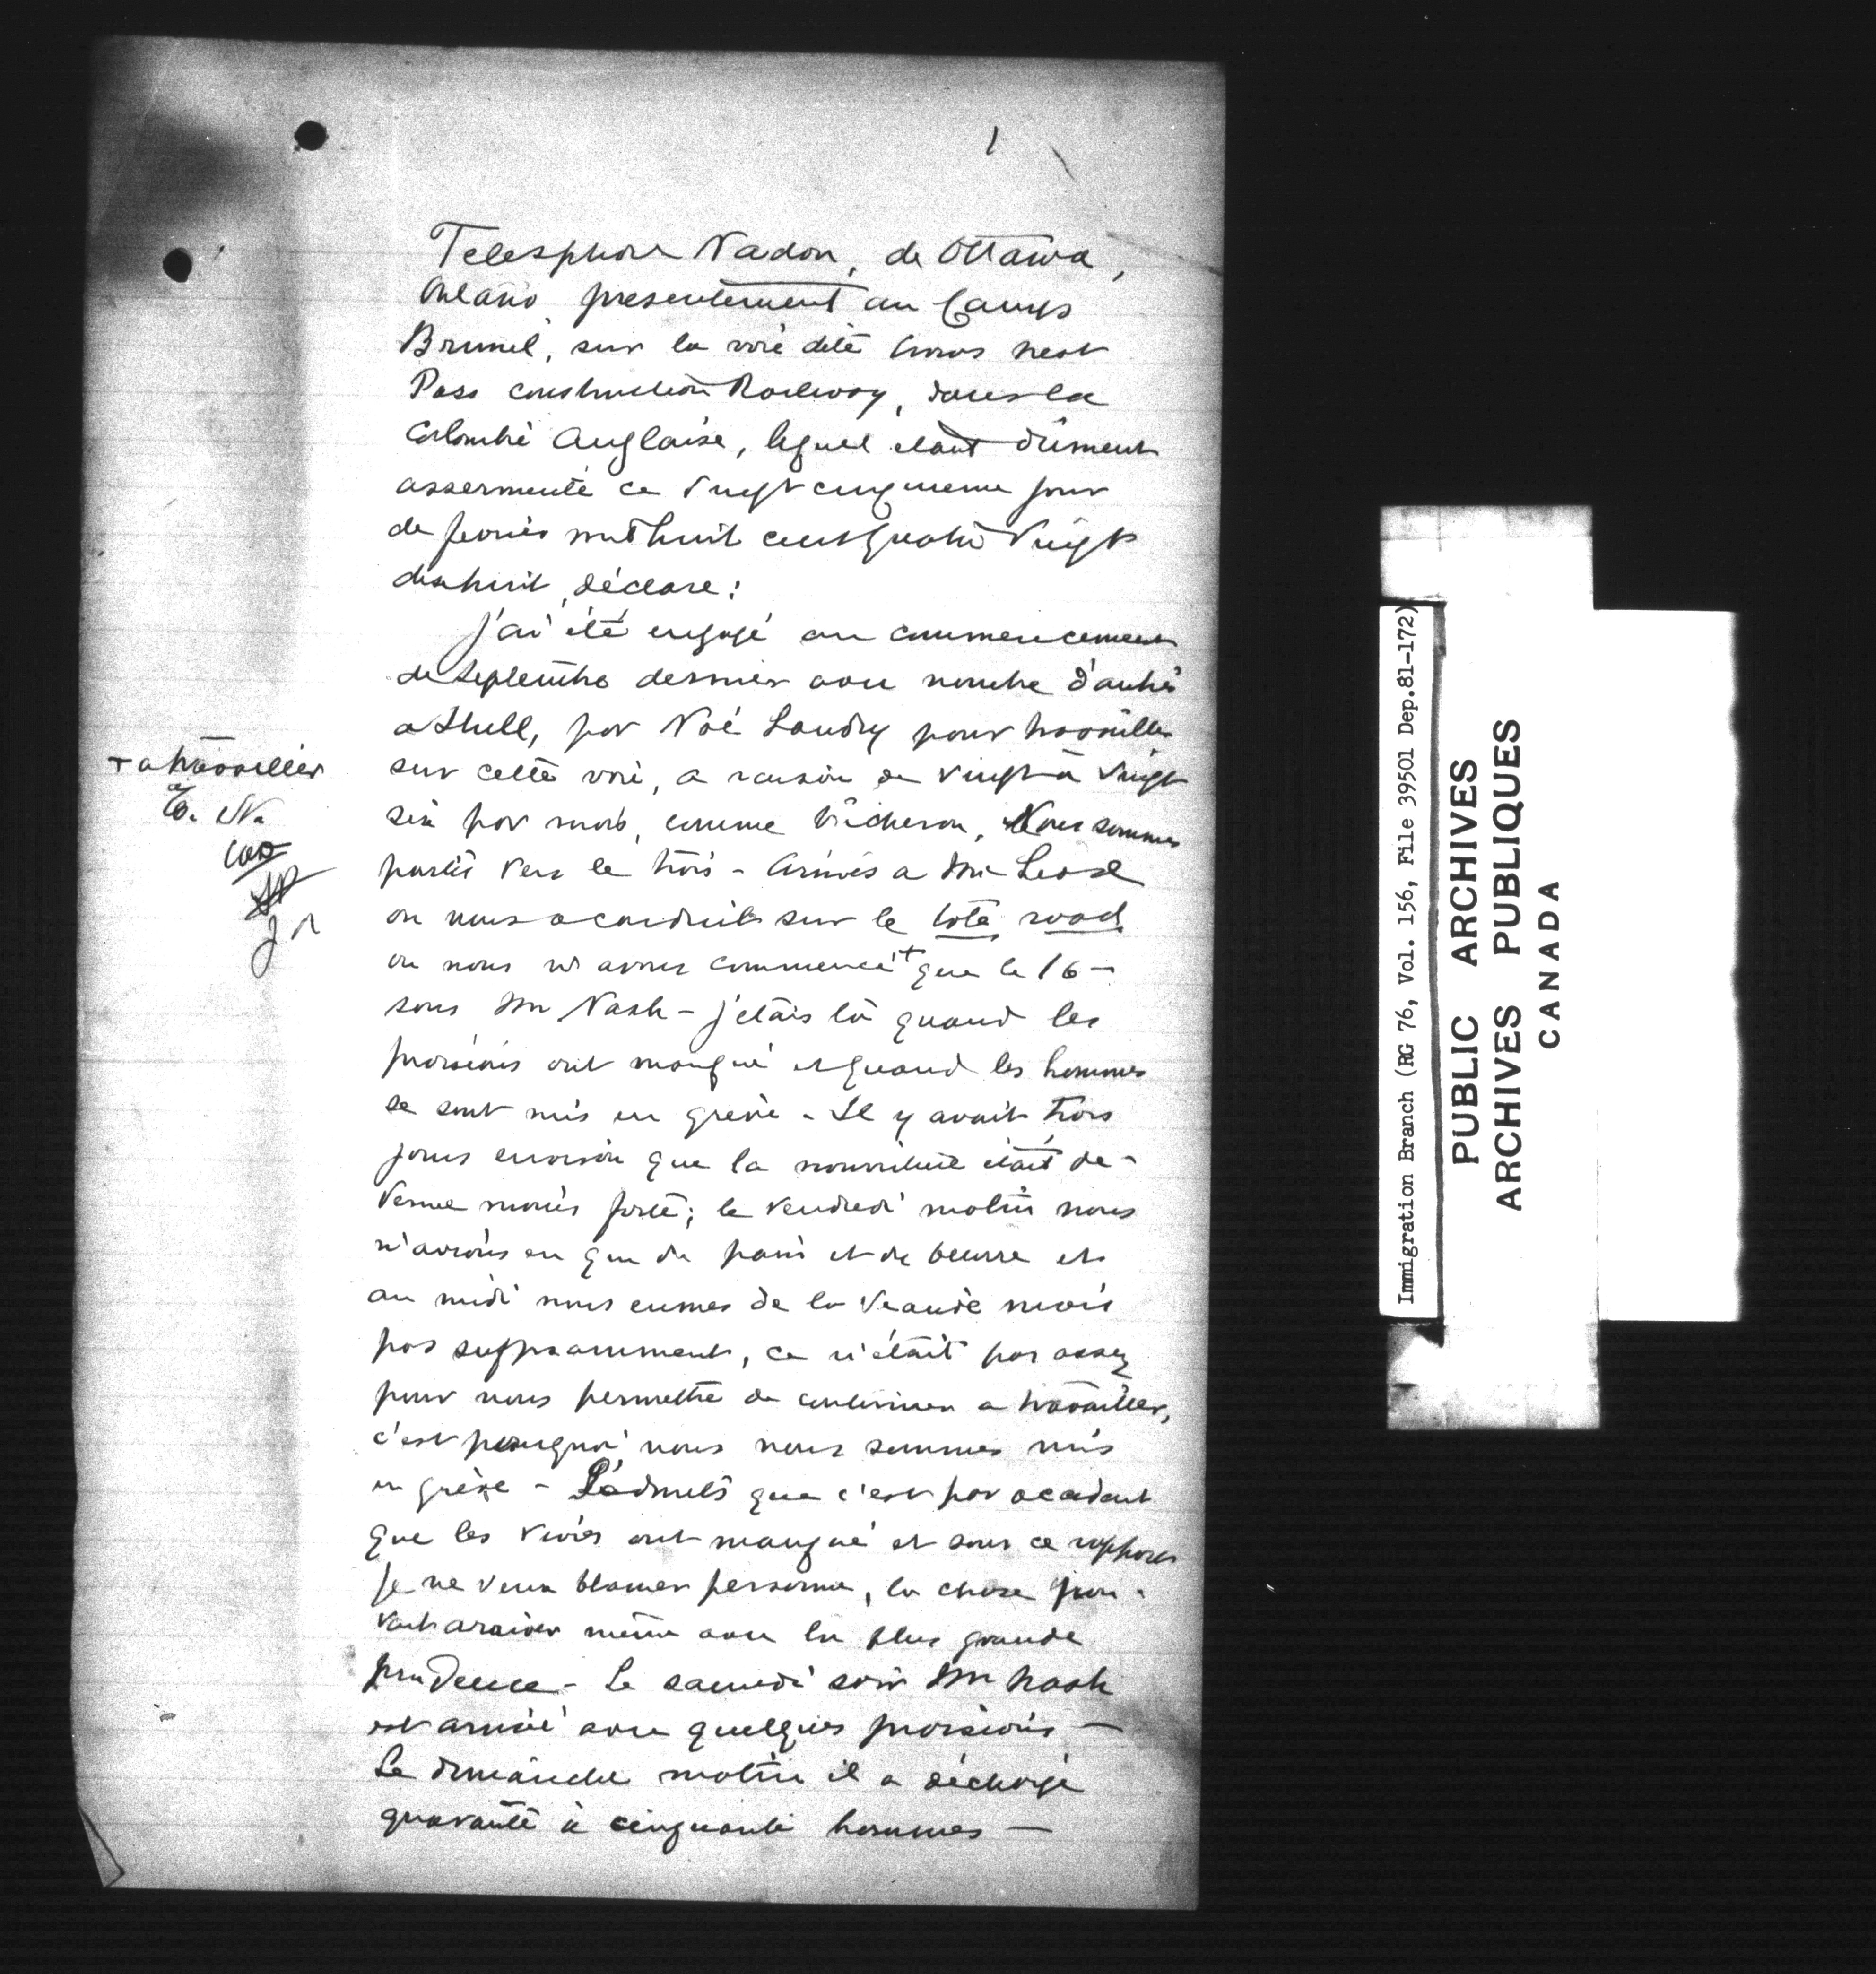 1
Telesphore Nadon, de Ottawa,
Ontario presentement au Camps
Brunel, sur la voie dite Crows nest
Pass construction Railway, dans la
Colombie Anglaise, lequel etant dûment
assermenté ce vingt cinquieme jour
de fevrier mil huit cent quatre vingt
dixhuit, déclare:
J'ai été engagé au commencement
de Septembre dernier avec nombre d'autres
a Hull, par Noé Landry pour travailler
sur cette voie, a raison de vingt à vingt
six par mois, comme bûcheron, Nous sommes
partis vers le trois - Arrivés a Mc Leod
on nous a conduit sur le tote road
ou nous n'avons commencé + que le 16 -
+ a travailler
T. N.
J N
sous Mr Nash - j'etais là quand les
provisions ont manqué et quand les hommes
se sont mis en greve - Il y avait trois
jours environ que la nourriture était de-
venue moins forte; le vendredi matin nous
n'avions eu que du pain et du beurre et
au midi nous eumes de la viande mais
pas suffisamment, ce n'était pas assez
pour nous permettre de continuer a travailler,
c'est pourquoi nous nous sommes mis
en grève - J'admets que c'est par accident
que les vivres ont manqué et sous ce rapport
je ne veux blamer personne, la chose pou-
vait arriver même avec la plus grande
prudence - Le samedi soir Mr Nash
est arrivé avec quelques provisions -
Le dimanche matin il a déchargé
quarante à cinquante hommes -
Immigration Branch (RG 76, Vol. 156, File 39501 Dep.81-172)
PUBLIC ARCHIVES
ARCHIVES PUBLIQUES
CANADA